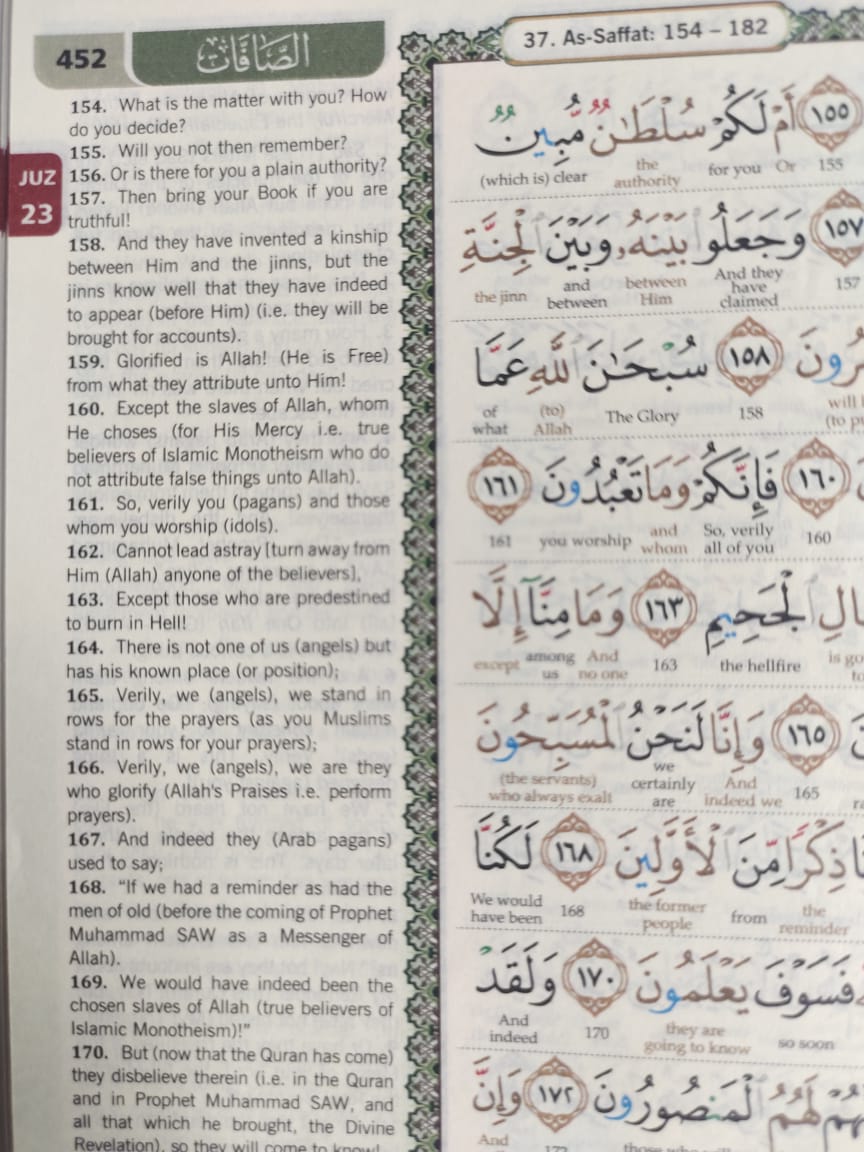 452
الصَّافَّات
37. As-Saffat: 154 – 182
JUZ
23
154. What is the matter with you? How
do you decide?
155. Will you not then remember?
156. Or is there for you a plain authority?
157. Then bring your Book if you are
truthful!
158. And they have invented a kinship
between Him and the jinns, but the
jinns know well that they have indeed
to appear (before Him) (i.e. they will be
brought for accounts).
159. Glorified is Allah! (He is Free)
from what they attribute unto Him!
160. Except the slaves of Allah, whom
He choses (for His Mercy i.e. true
believers of Islamic Monotheism who do
not attribute false things unto Allah).
161. So, verily you (pagans) and those
whom you worship (idols).
162. Cannot lead astray [turn away from
Him (Allah) anyone of the believers],
163. Except those who are predestined
to burn in Hell!
164. There is not one of us (angels) but
has his known place (or position);
165. Verily, we (angels), we stand in
rows for the prayers (as you Muslims
stand in rows for your prayers);
166. Verily, we (angels), we are they
who glorify (Allah's Praises i.e. perform
prayers).
167. And indeed they (Arab pagans)
used to say;
168. "If we had a reminder as had the
men of old (before the coming of Prophet
Muhammad SAW as a Messenger of
Allah).
169. We would have indeed been the
chosen slaves of Allah (true believers of
Islamic Monotheism)!"
170. But (now that the Quran has come)
they disbelieve therein (i.e. in the Quran
and in Prophet Muhammad SAW, and
all that which he brought, the Divine
Revelation), so they will come to know!
١٥٥ أَمْ لَكُمْ سُلْطَٰنٌ مُّبِينٌ
155 Or for you the authority (which is) clear
١٥٧ وَجَعَلُوا بَيْنَهُۥ وَبَيْنَ الْجِنَّةِ
157 And they have claimed between Him and between the jinn
١٥٨ سُبْحَٰنَ اللَّهِ عَمَّا
158 The Glory (to) Allah of what
١٦٠ فَإِنَّكُمْ وَمَا تَعْبُدُونَ ١٦١
160 So, verily all of you and whom you worship 161
الْجَحِيمِ ١٦٣ وَمَا مِنَّآ إِلَّا
the hellfire 163 And no one among us except
١٦٥ وَإِنَّا لَنَحْنُ الْمُسَبِّحُونَ
165 And indeed we we certainly are (the servants) who always exalt
ذِكْرًا مِّنَ الْأَوَّلِينَ ١٦٨ لَكُنَّا
the reminder from the former people 168 We would have been
فَسَوْفَ يَعْلَمُونَ ١٧٠ وَلَقَدْ
so soon they are going to know 170 And indeed
لَهُمُ الْمَنصُورُونَ ١٧٢ وَإِنَّ
172 And